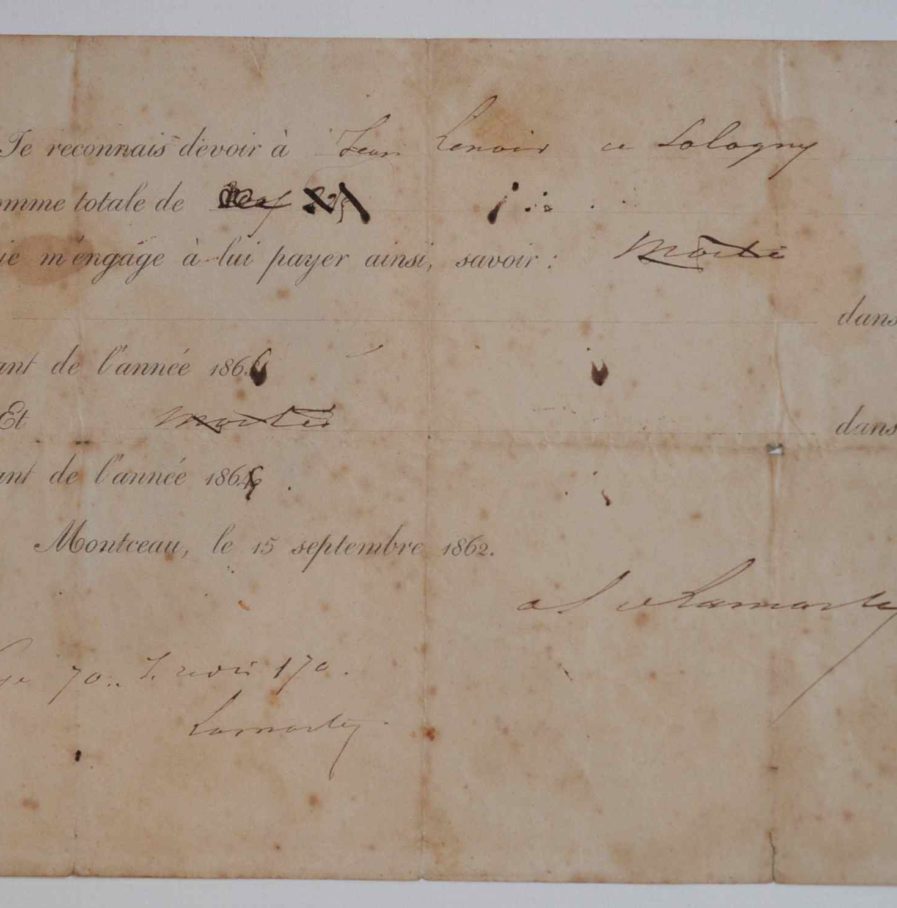 Je reconnais devoir à Jean Lenoir a Sologny
omme totale de
je m'engage à lui payer ainsi, savoir : Moitié
dans
ant de l'année 186
Et Moitié dans
ant de l'année 186
Montceau, le 15 septembre 1862.
al de Lamartine
70 170.
Lamartine